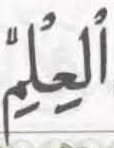 اُلْعِلُمِّ